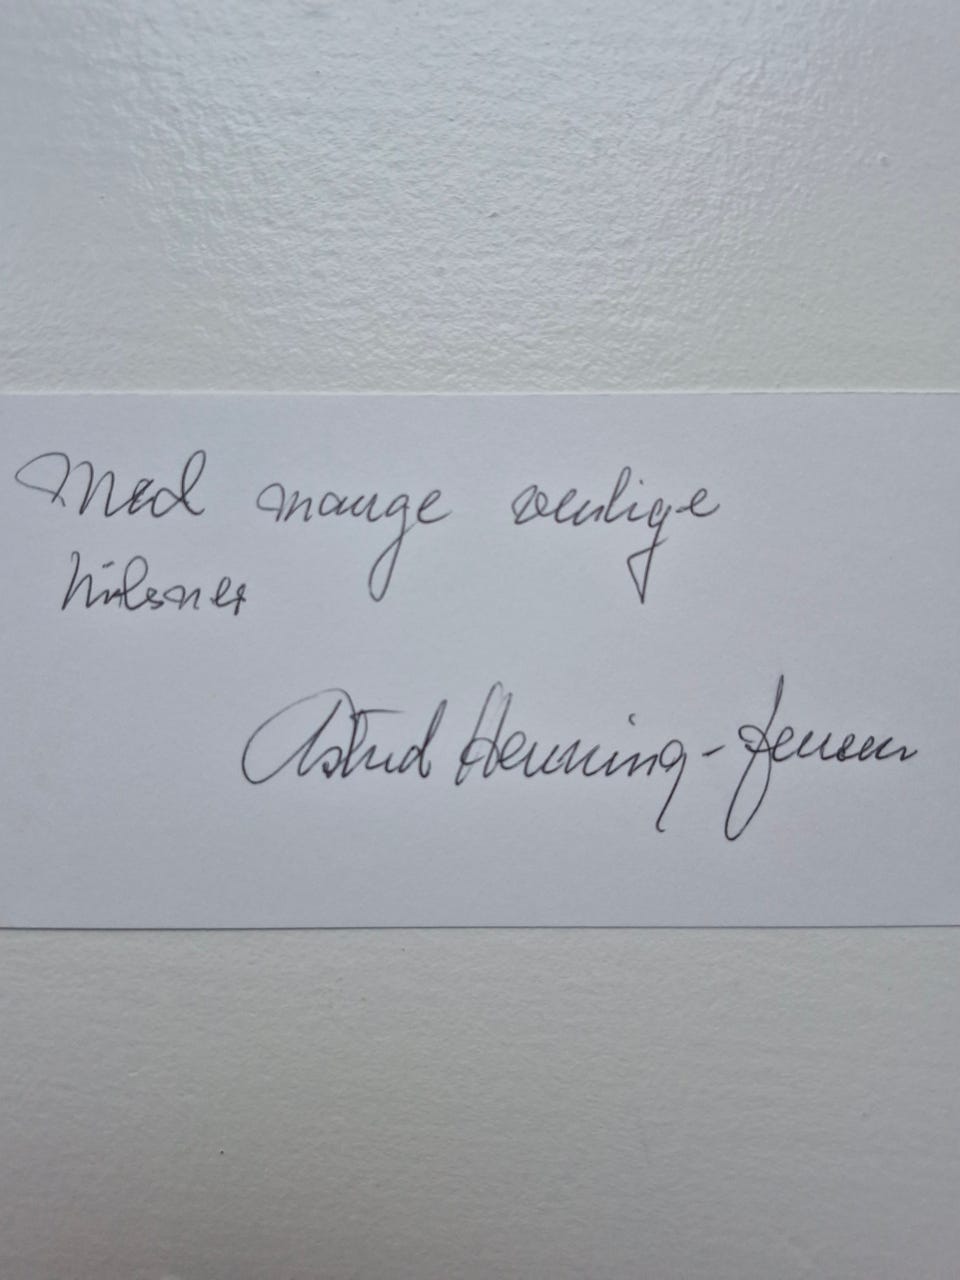 Med mange venlige
hilsner
Astrid Henning-Jensen